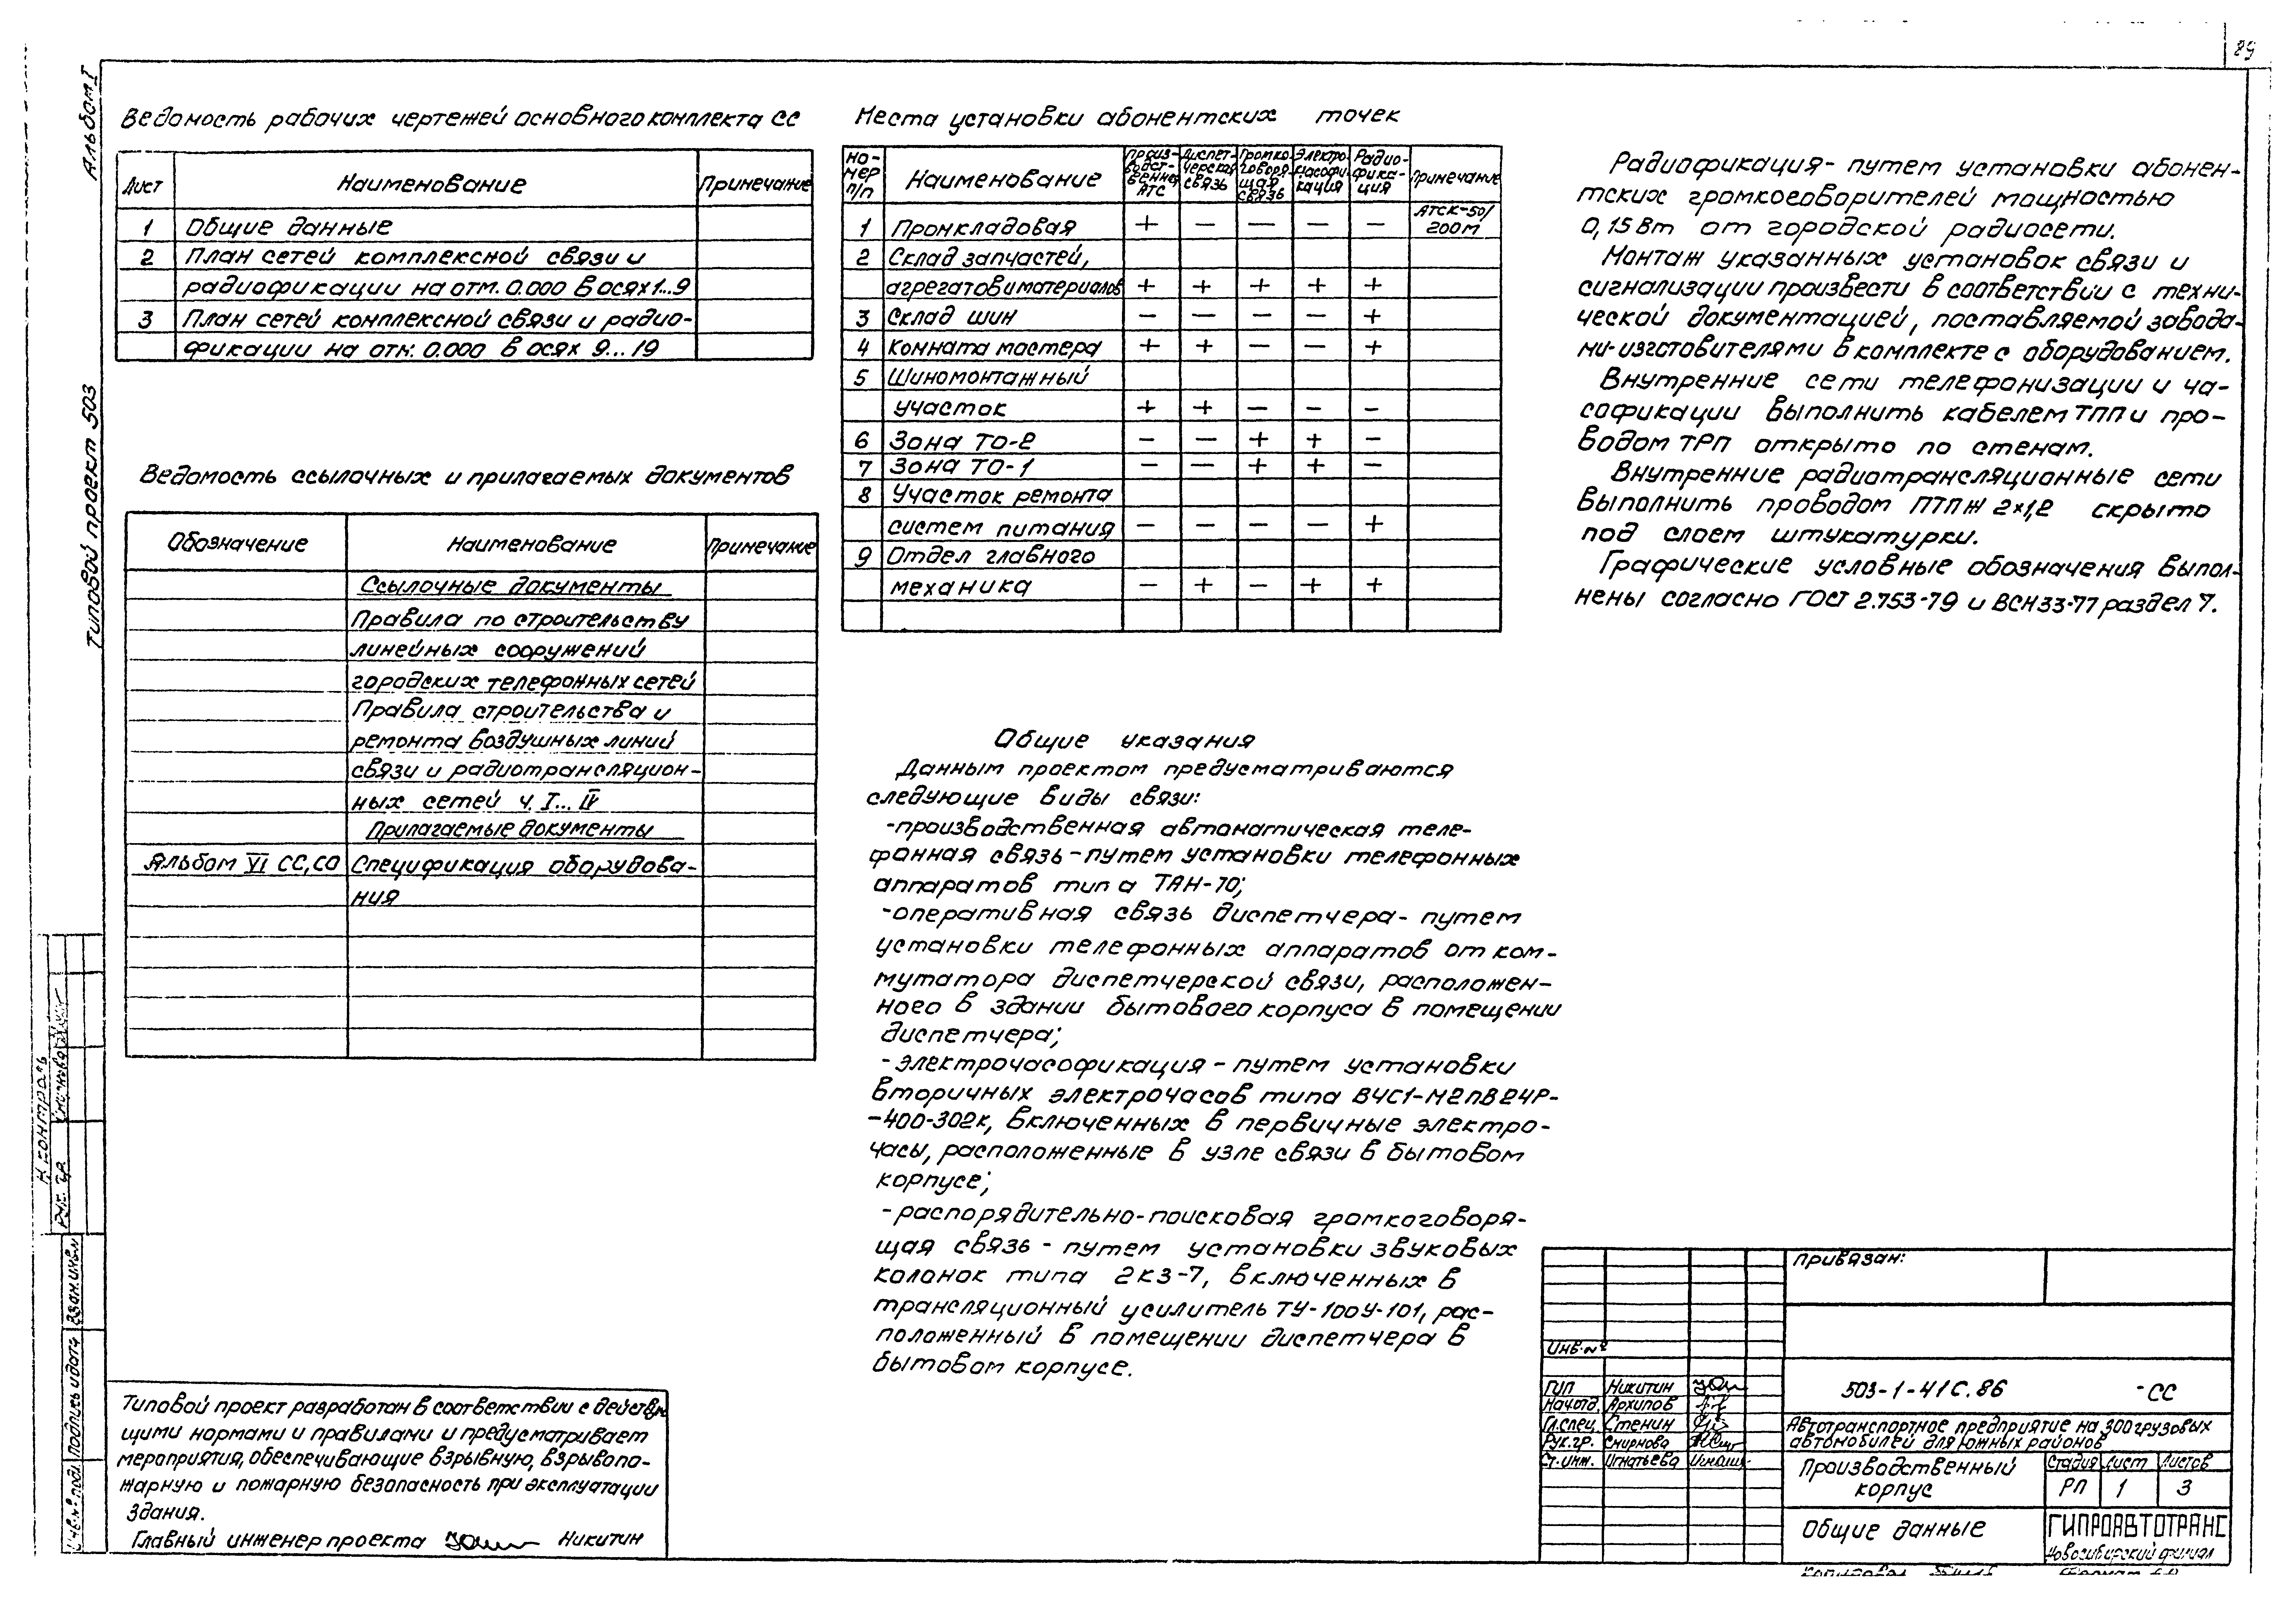 89
Альбом I
Типовой проект 503
Ведомость рабочих чертежей основного комплекта СС
Лист Наименование Примечание
1 Общие данные
2 План сетей комплексной связи и
радиофикации на отм. 0.000 в осях 1...9
3 План сетей комплексной связи и радио-
фикации на отм. 0.000 в осях 9...19
Ведомость ссылочных и прилагаемых документов
Обозначение Наименование Примечание
Ссылочные документы
Правила по строительству
линейных сооружений
городских телефонных сетей
Правила строительства и
ремонта воздушных линий
связи и радиотрансляцион-
ных сетей ч. I... IV
Прилагаемые документы
Альбом VI СС,СО Спецификация оборудова-
ния
Типовой проект разработан в соответствии с действу
щими нормами и правилами и предусматривает
мероприятия, обеспечивающие взрывную, взрывопо-
жарную и пожарную безопасность при эксплуатации
здания.
Главный инженер проекта Никитин
Места установки абонентских точек
Но-
мер
п/п
Наименование
Произ-
водст-
венная
АТС
Диспет-
черская
связь
Громко-
говоря-
щая
связь
Электро-
часофи-
кация
Радио-
фика-
ция
Примечание
1 Промкладовая + — — — — АТСК-50/
200м
2 Склад запчастей,
агрегатов и материалов + + + + +
3 Склад шин — — — — +
4 Комната мастера + + — — +
5 Шиномонтажный
участок + + — — —
6 Зона ТО-2 — — + + —
7 Зона ТО-1 — — + + —
8 Участок ремонта
систем питания — — — — +
9 Отдел главного
механика — + — + +
Общие указания
Данным проектом предусматриваются
следующие виды связи:
-производственная автоматическая теле-
фонная связь-путем установки телефонных
аппаратов типа ТАН-70;
-оперативная связь диспетчера- путем
установки телефонных аппаратов от ком-
мутатора диспетчерской связи, расположен-
ного в здании бытового корпуса в помещении
диспетчера;
-электрочасофикация - путем установки
вторичных электрочасов типа ВЧС1-М2ПВ24Р-
-400-302к, включенных в первичные электро-
часы, расположенные в узле связи в бытовом
корпусе;
-распорядительно-поисковая громкоговоря-
щая связь - путем установки звуковых
колонок типа 2КЗ-7, включенных в
трансляционный усилитель ТУ-100У-101, рас-
положенный в помещении диспетчера в
бытовом корпусе.
Радиофикация- путем установки абонен-
тских громкоговорителей мощностью
0,15 Вт от городской радиосети.
Монтаж указанных установок связи и
сигнализации произвести в соответствии с техни-
ческой документацией, поставляемой завода-
ми-изготовителями в комплекте с оборудованием.
Внутренние сети телефонизации и ча-
софикации выполнить кабелем ТПП и про-
водом ТРП открыто по стенам.
Внутренние радиотрансляционные сети
выполнить проводом ПТПЖ 2×1,2 скрыто
под слоем штукатурки.
Графические условные обозначения выпол-
нены согласно ГОСТ 2.753-79 и ВСН 33-77 раздел 7.
Н контроль
Рук. гр. Смирнова
Взам. инв. №
Подпись и дата
Инв. № подл.
Привязан:
Инв. №
ГИП Никитин
Нач.отд. Архипов
Гл.спец. Стенин
Рук.гр. Смирнова
Ст.инж. Игнатьева
503-1-41С.86 -СС
Автотранспортное предприятие на 300 грузовых
автомобилей для южных районов
Производственный
корпус
Стадия Лист Листов
РП 1 3
Общие данные
ГИПРОАВТОТРАНС
Новосибирский филиал